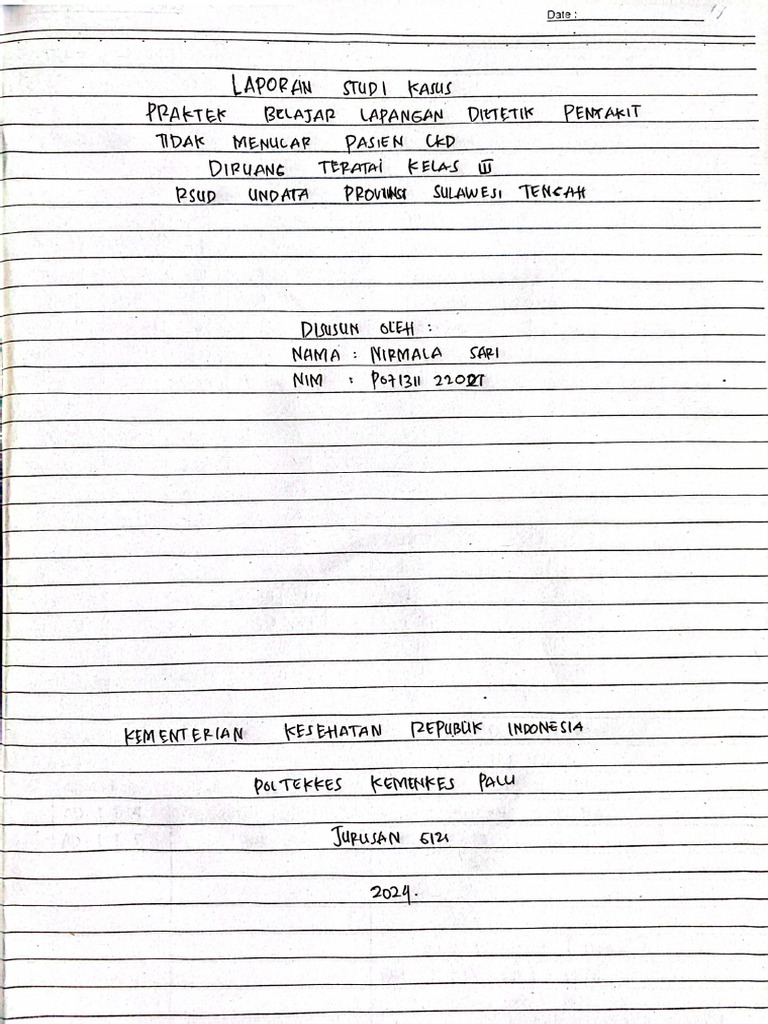 Date :
LAPORAN STUDI KASUS
PRAKTEK BELAJAR LAPANGAN DIETETIK PENYAKIT
TIDAK MENULAR PASIEN CKD
DIRUANG TERATAI KELAS III
RSUD UNDATA PROVINSI SULAWESI TENGAH
DISUSUN OLEH :
NAMA : NIRMALA SARI
NIM :
KEMENTERIAN KESEHATAN REPUBLIK INDONESIA
POLTEKKES KEMENKES PALU
JURUSAN GIZI
2024.